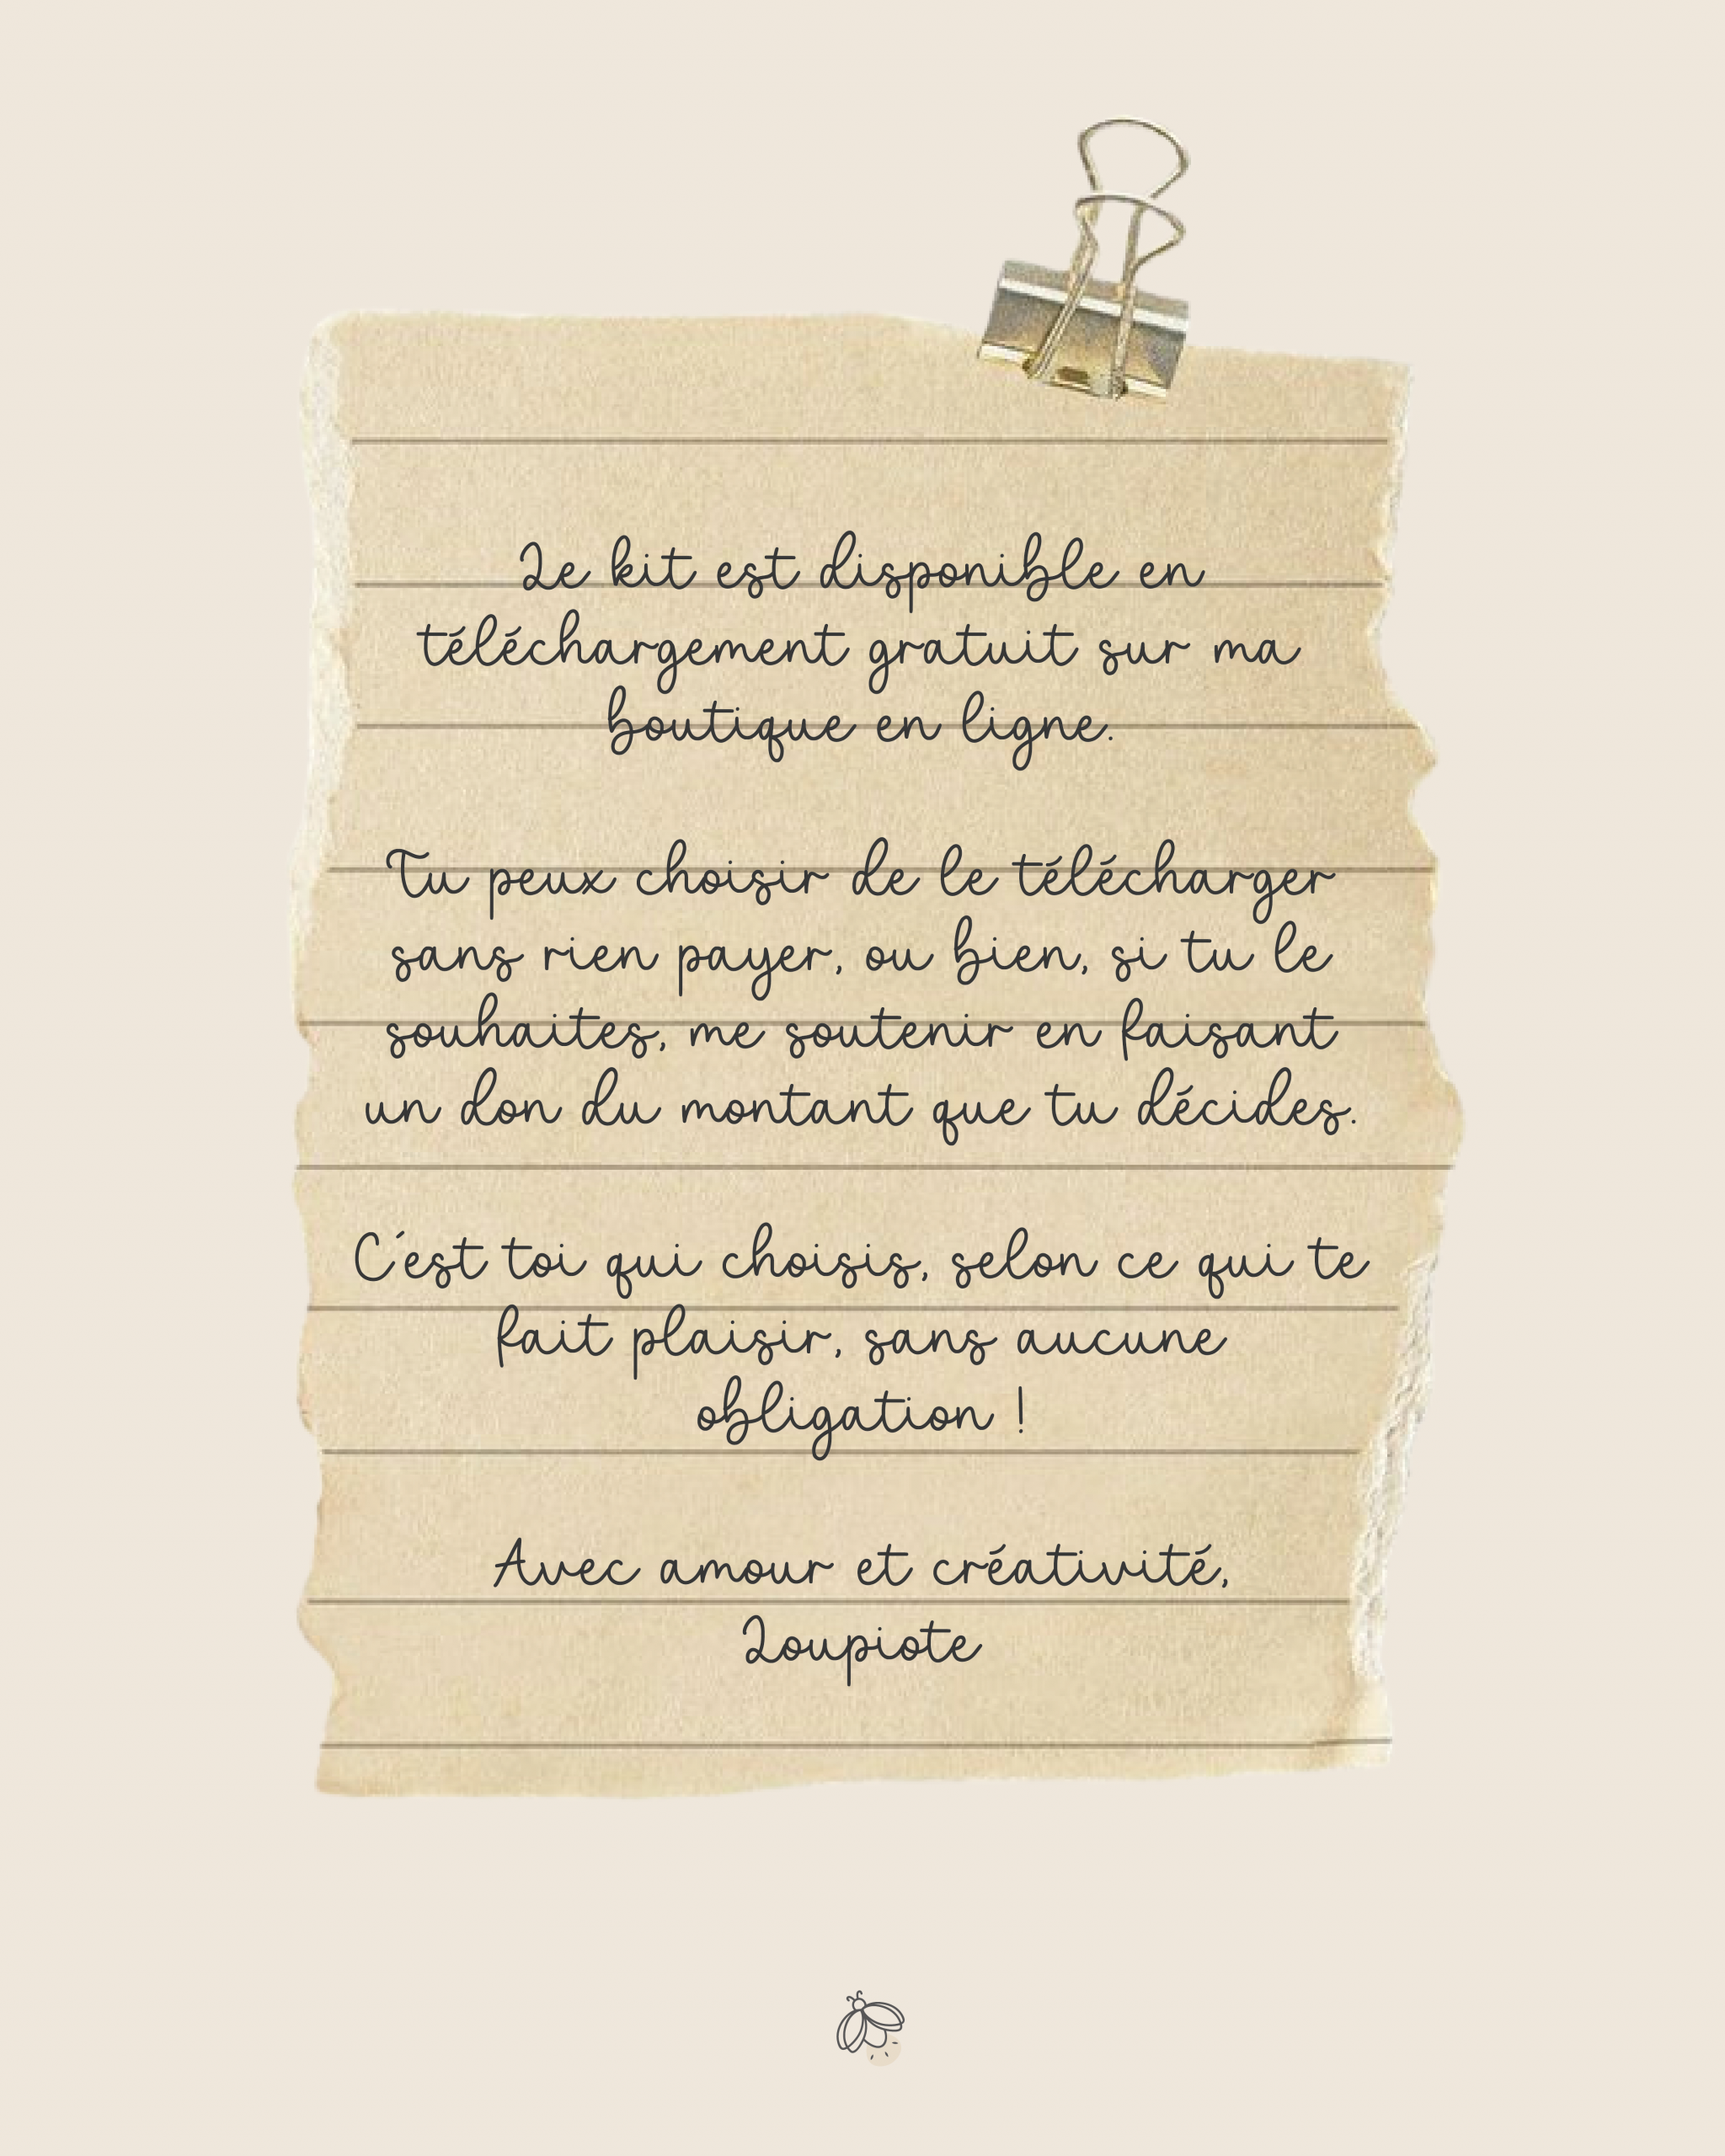 Le kit est disponible en
téléchargement gratuit sur ma
boutique en ligne.
Tu peux choisir de le télécharger
sans rien payer, ou bien, si tu le
souhaites, me soutenir en faisant
un don du montant que tu décides.
C'est toi qui choisis, selon ce qui te
fait plaisir, sans aucune
obligation !
Avec amour et créativité,
Loupiote